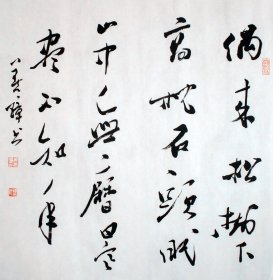 偶来松樹下
高枕石頭眠
山中無曆日寒
盡不知年